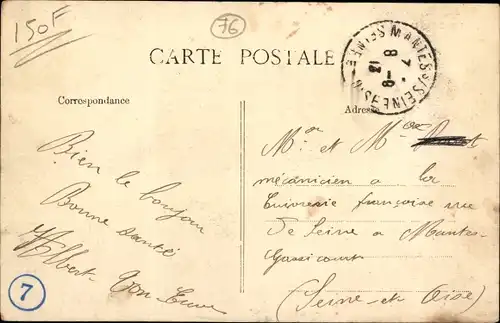 150F
76
CARTE POSTALE
MANTES S/SEINE
8
7 - 8
13
Correspondance
Adresse
Bien le bonjour
Bonne santé
Albert
Mr et Mme
mécanicien a la
Cuivrerie française rue
De Seine a Mantes-
Gassicourt
(Seine-et Oise)
7